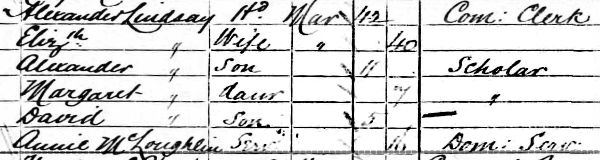 Alexander Lindsay Hd Mar 42 Com: Clerk
Elizth " Wife " 40
Alexander " Son 11 Scholar
Margaret " daur 7 "
David " Son 5 —
Annie McLoughlin Serv Dom: Serv